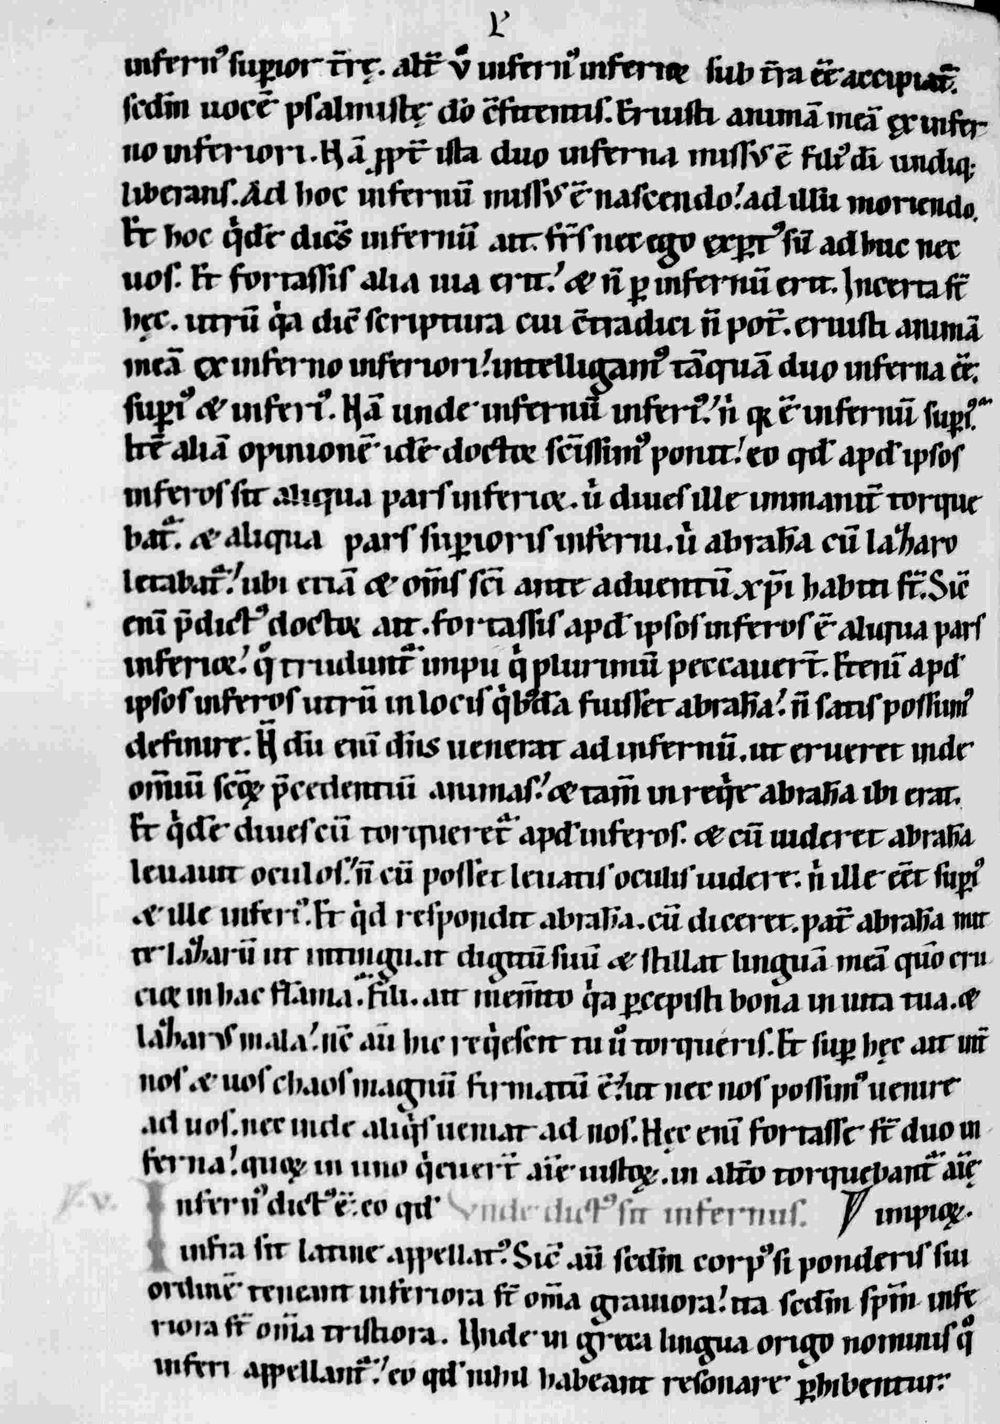 infern᷒ suꝑior tr̄ę. alt̄ ū infern᷒ inferiꝰ sub tr̄a eē accipiat᷑.
scd̄m uocē psalmistę dō c̄fitentis. Eruisti animā meā ex infer
no inferiori. H̄ ā ꝓpt̄ ista duo inferna missus ē fili᷒ dī undiq;
liberans. Ad hoc infernū missus ē nascendo. ad illū moriendo.
Et hoc q̇dē dicēs infernū ait. fr̄s nec ego exꝑt᷒ sū adhuc nec
uos. Et fortassis alia uia erit. & n̄ ꝑ infernū erit. Incerta st̄
hęc. utrū q̇a dic̄ scriptura cui c̄tradici n̄ pot̄. eruisti animā
meā ex inferno inferiori. intelligam᷒ tāquā duo inferna eē.
suꝑi᷒ & inferi᷒. Hā unde infernū inferi᷒. n̄ qꝛ ē infernū suꝑi᷒.
Itē aliā opinionē idē doctor sc̄issim᷒ ponit. eo qd̄ apd̄ ipsos
inferos sit aliqua pars inferior. ů diues ille immanit̄ torque
bat᷑. & aliqua pars suꝑioris inferni. ů abrahā cū lazaro
letabat᷑. ubi etiā & om̄s sc̄i ante aduentū xp̄i habiti st̄. Sic̄
enī p̄dict᷒ doctor ait. fortassis apd̄ ipsos inferos ē aliqua pars
inferior. q̊ trudunt᷑ impii q̇ plurimū peccauer̄t. Etenī apd̄
ipsos inferos utrū in locis q̇bdā fuisset abrahā. n̄ satis possum᷒
definire. H̄ dū enī dn̄s uenerat ad infernū. ut erueret inde
om̄iū sc̄oꝝ p̄cedentiū animas. & tam̄ in req̇e abrahā ibi erat.
Et q̇dē diues cū torqueret᷑ apd̄ inferos. & cū uideret abrahā
leuauit oculos. n̄ cū posset leuatis oculis uidere. n̄ ille eēt suꝑi᷒
& ille inferi᷒. Et q̇d respondit abrahā. cū diceret. pat̄ abrahā mit
te lazarū ut intinguat digitū suū & stillat linguā meā quō cru
cior in hac flāma. Fili. ait mem̄to q̇a ꝑcepisti bona in uita tua. &
lazarus mala. nc̄ aū hic req̇escit tu ů torqueris. Et suꝑ hęc ait int̄
nos & uos chaos magnū firmatū ē. ut nec nos possim᷒ uenire
ad uos. nec inde aliq̇s ueniat ad nos. Hęc enī fortasse st̄ duo in
ferna. quoꝝ in uno q̇euer̄t aīē iustoꝝ. in alt̄o torquebant᷑ aīę
Infern᷒ dict᷒ ē. eo qd̄ Vnde dict᷒ sit infernus. impioꝝ.
infra sit latine appellat᷒. Sic̄ aū scd̄m corp᷒ si ponderis sui
ordinē teneant inferiora st̄ om̄ia grauiora. ita scd̄m spm̄ infe
riora st̄ om̄ia tristiora. Unde in greca lingua origo nominis q̊
inferi appellant᷑. eo qd̄ nihil habeant resonare ꝑhibentur.